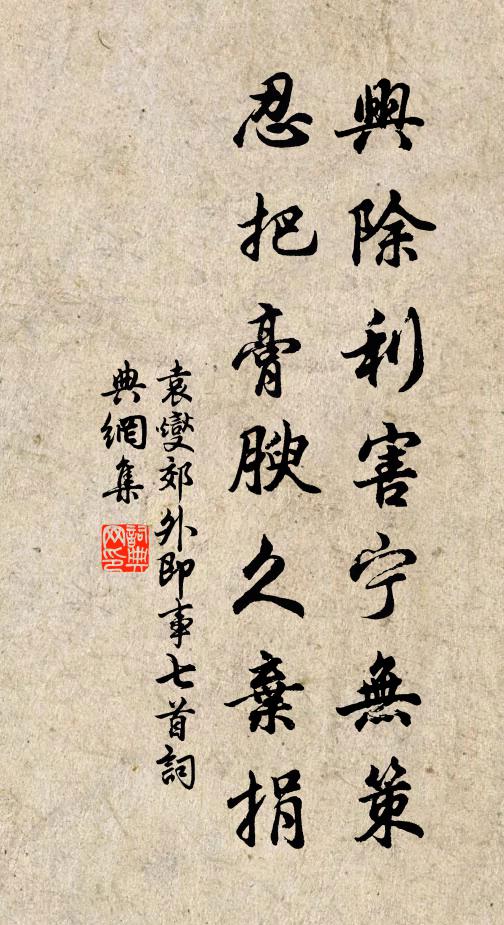 興除利害宁無策
忍把膏腴久棄捐
袁燮郊外即事七首詞
典網集
詞典
网印